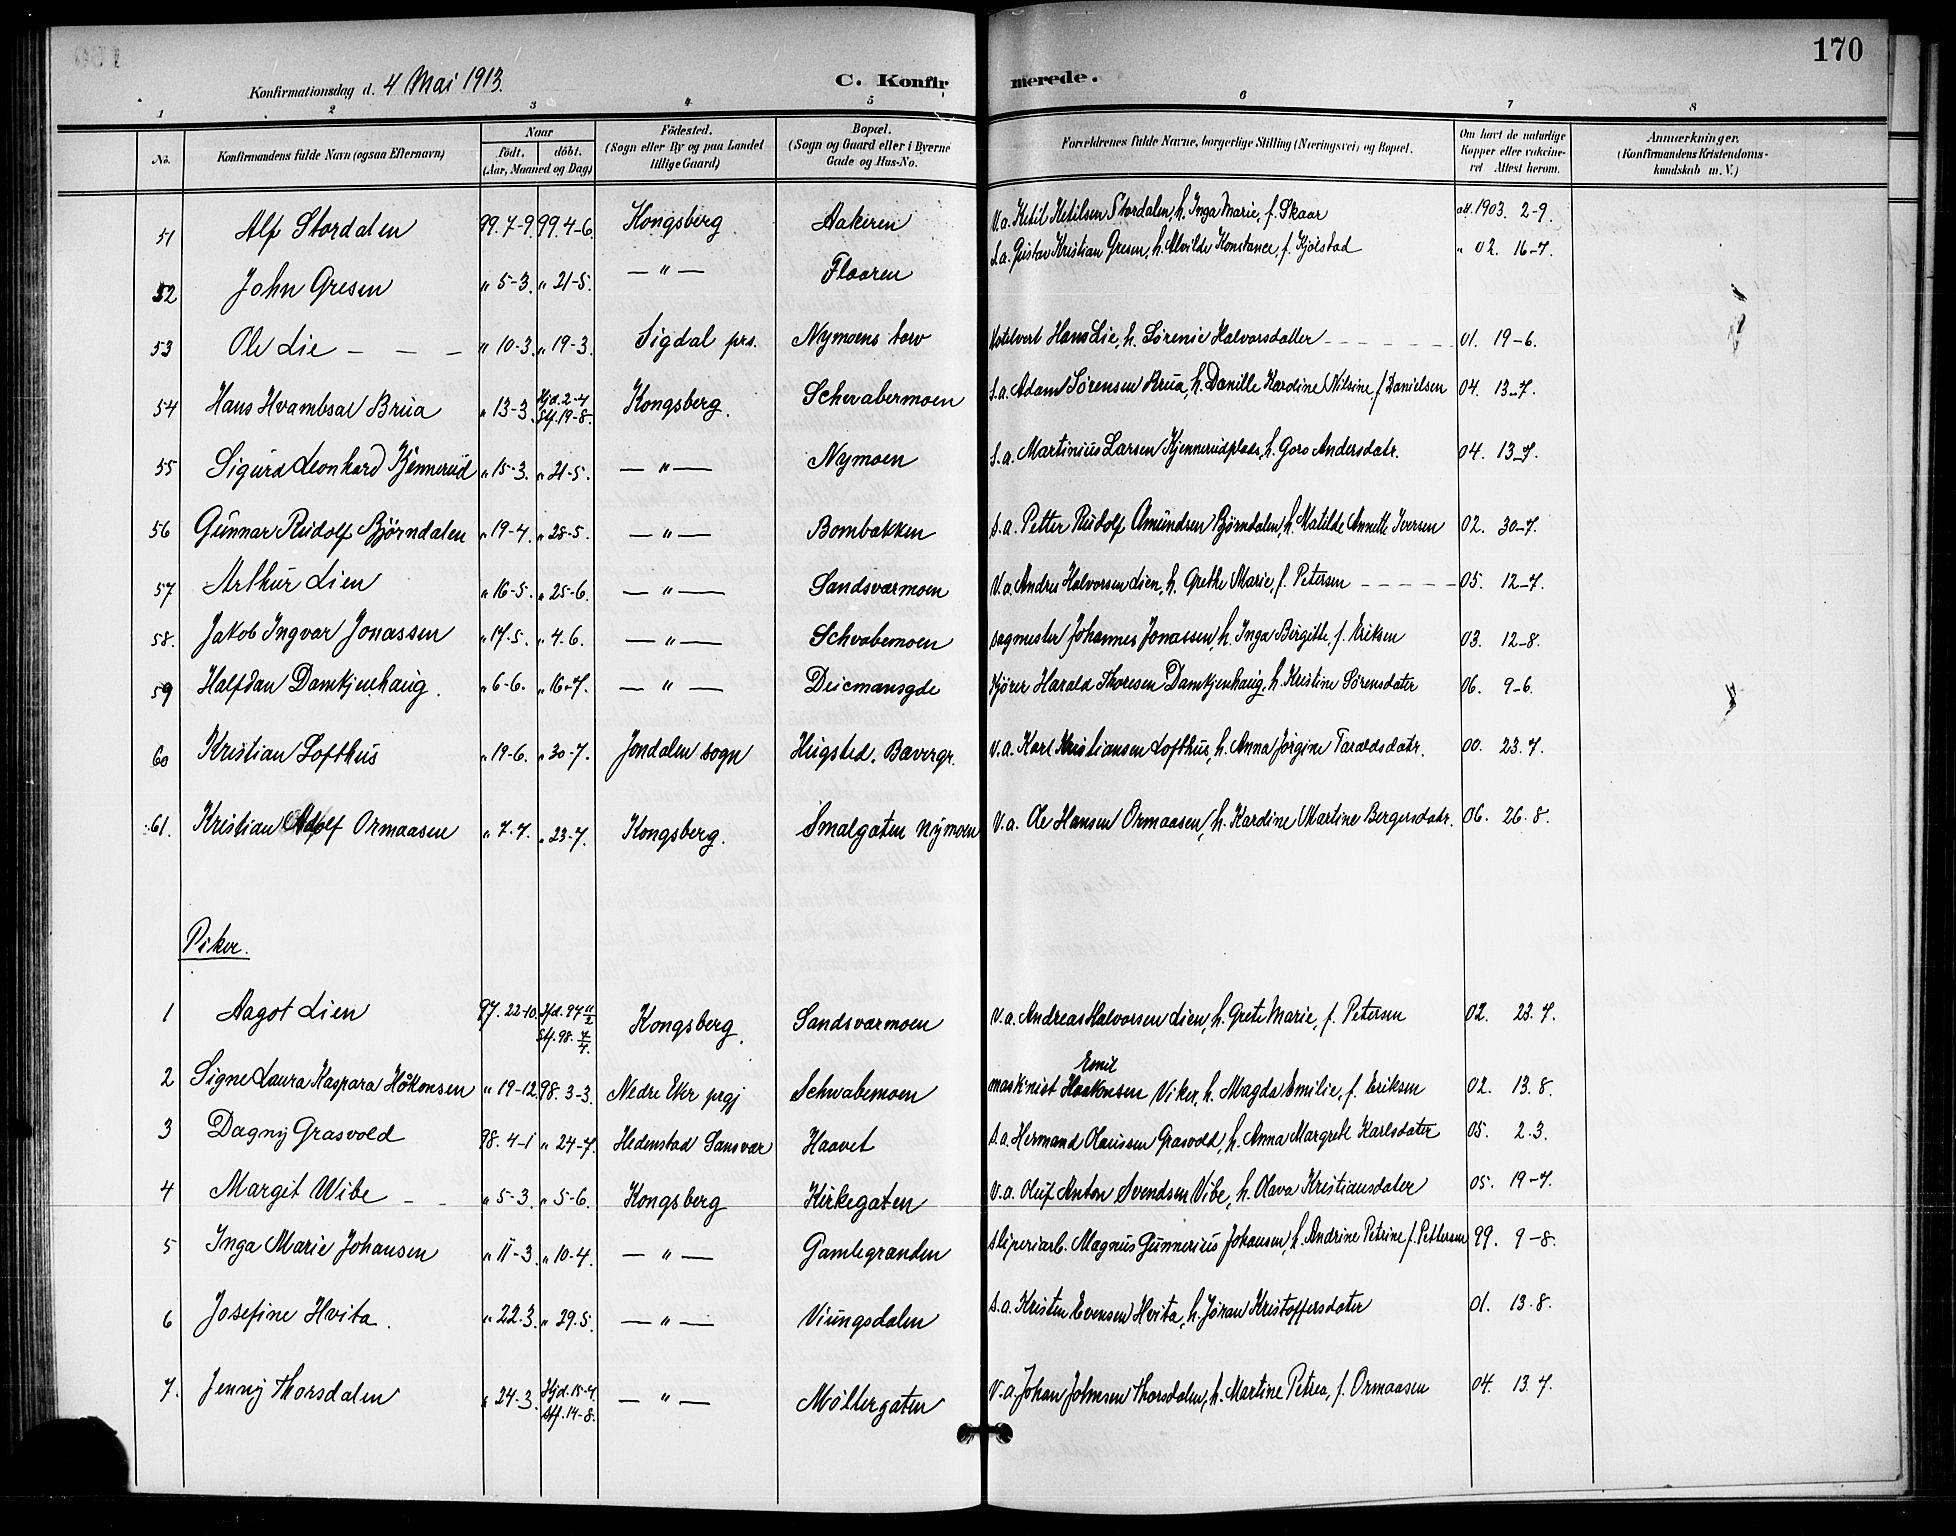 170
Konfirmationsdag d. 4 Mai 1913.
C. Konfirmerede.
1 2 3 4 5 6 7 8
No. Konfirmandens fulde Navn (ogsaa Efternavn) Naar født. døbt. (Aar, Maaned og Dag) Fødested. (Sogn eller By og paa Landet tillige Gaard) Bopæl. (Sogn og Gaard eller i Byerne Gade og Hus-No. Forældrenes fulde Navne, borgerlige Stilling (Næringsvei) og Bopæl. Om havt de naturlige Kopper eller vakcineret. Attest herom. Anmærkninger. (Konfirmandens Kristendomskundskab m. V.)
51 Alf Stordalen 99. 7-9. 99. 4-6. Kongsberg Aakeren V.a. Ketil Ketilsen Stordalen, h. Inga Marie, f. Skaar att. 1903. 2-9.
52 John Gresen " 5-3. " 21-5. — " — Flaaren S.a. Gustav Kristian Gresen, h. Alvilde Konstance, f. Kjølstad " 02. 16-7.
53 Ole Lie — — — " 10-3. " 19-3. Sigdal prs. Nymoens torv Hotelvert Hans Lie, h. Sørenie Halvorsdatter 01. 19-6.
54 Hans Hvambsal Brua " 13-3. Hjd. 2-4 Stf. 19-8. Kongsberg. Schwabermoen S.a. Adam Sørensen Brua, h. Danille Kardine Nilsine, f. Danielsen 04. 13-7.
55 Sigurd Leonhard Kjennerud " 15-3. " 21-5. — " — Nymoen S.a. Martinius Larsen Kjennerudplads, h. Goro Andersdatr. 04. 13-7.
56 Gunnar Rudolf Bjørndalen " 19-4. " 28-5. — " — Bombakken S.a. Petter Rudolf Amundsen Bjørndalen, h. Matilde Annette Iversen 02. 30-7.
57 Arthur Lien " 16-5. " 25-6. — " — Sandsværmoen V.a. Andres Halvorsen Lien, h. Grethe Marie, f. Petersen 05. 12-7.
58. Jakob Ingvar Jonassen " 17-5. " 4.6. — " — Schvabemoen sagmester Johannes Jonassen, h. Inga Birgitte, f. Eriksen 03. 12-8.
59 Halfdan Damkjenhaug. " 6-6. " 16-7. — " — Deicmansgde Kjører Harald Thoresen Damkjenhaug, h. Kristine Sørensdater 06. 9-6.
60 Kristian Lofthus " 19-6. " 30-7. Jondalen sogn Hugsted. Bævergr. V.a. Karl Kristiansen Lofthus, h. Anna Jørgine Taraldsdatr. 00. 23.7.
61. Kristian Adolf Ormaasen " 7.7. " 23-7. Kongsberg. Smalgaten Nymoen V.a. Ole Hansen Ormaasen, h. Kardine Martine Bergersdatr. 06. 26.8.
Piker.
1 Aagot Lien 97. 22-10. Hjd. 97 11/2 Stf. 98. 7/7. Kongsberg. Sandsværmoen V.a. Andreas Halvorsen Lien, h. Grete Marie, f. Petersen 02. 23.7.
2 Signe Laura Kaspara Håkonsen " 19-12. 98. 3-3. Nedre Eker prgj Schwabemoen maskinist Emil Haakonsen Viker, h. Magda Emilie, f. Eriksen 02. 13.8.
3 Dagny Grasvold 98. 4-1 " 24-7. Hedenstad Sansvær Haavet S.a. Hermand Olaussen Grasvold, h. Anna Margrete Karlsdater 05. 2.3.
4 Margit Wibe " 5-3. " 5-6. Kongsberg Kirkegaten V.a. Oluf Anton Svendsen Vibe, h. Olava Kristiansdater 05. 19-7.
5 Inga Marie Johansen " 11-3. " 10-4. — " — Gamlegranden Sliperiarb. Magnus Gunnerius Johansen, h. Andrine Petrine f. Pettersen 99. 9-8.
6 Josefine Hvita. " 22.3. " 29.5. — " — Viungsdalen S.a. Kristen Evensen Hvita, h. Jøran Kristoffersdater 01. 13.8.
7. Jenny Thorsdalen " 24-3. Hjd. 15-4 Stf. 14-8. — " — Møllergaten V.a. Johan Johnsen Thorsdalen, h. Martine Petrea, f. Ormaasen 04. 13.7.